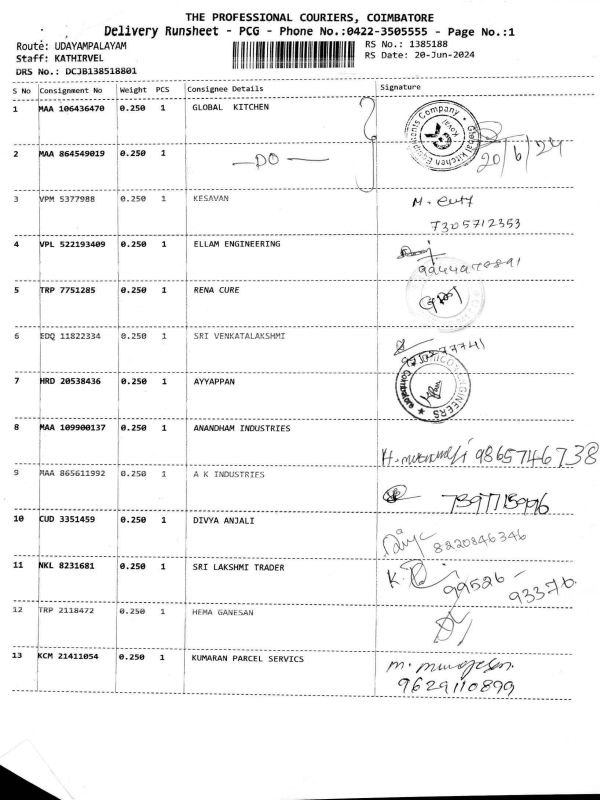 THE PROFESSIONAL COURIERS, COIMBATORE
Delivery Runsheet - PCG - Phone No.:0422-3505555 - Page No.:1
Route: UDAYAMPALAYAM RS No.: 1385188
Staff: KATHIRVEL RS Date: 20-Jun-2024
DRS No.: DCJB138518801
S No Consignment No Weight PCS Consignee Details Signature
1 MAA 106436470 0.250 1 GLOBAL KITCHEN
Global Kitchen Equipments Company
20/6/24
2 MAA 864549019 0.250 1 —DO—
3 VPM 5377988 0.250 1 KESAVAN
7305712353
4 VPL 522193409 0.250 1 ELLAM ENGINEERING
5 TRP 7751285 0.250 1 RENA CURE
6 EDQ 11822334 0.250 1 SRI VENKATALAKSHMI
7 HRD 20538436 0.250 1 AYYAPPAN
8 MAA 109900137 0.250 1 ANANDHAM INDUSTRIES
9865746738
9 MAA 865611992 0.250 1 A K INDUSTRIES
10 CUD 3351459 0.250 1 DIVYA ANJALI
8220846346
11 NKL 8231681 0.250 1 SRI LAKSHMI TRADER
99526 -
93376.
12 TRP 2118472 0.250 1 HEMA GANESAN
13 KCM 21411054 0.250 1 KUMARAN PARCEL SERVICS
9629110899